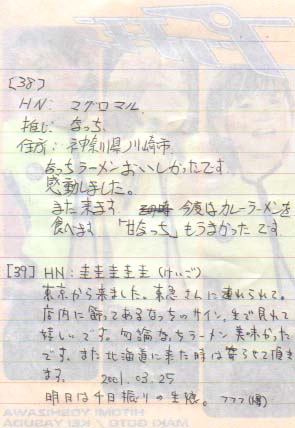 [38]
HN: マグロマル
推し: なっち
住所: 神奈川県川崎市
なっちラーメンおいしかったです
感動しました。
また来ます 今度はカレーラーメンを
食べます 「甘なっち」もうまかったです
[39] HN:圭圭圭圭圭(けいご)
東京から来ました。東急さんに連れられて。
店内に飾ってあるなっちのサイン、生で見れて
嬉しいです。勿論なっちラーメン美味かった
です。また北海道に来た時は寄らせて頂き
ます 2001.03.25
明日は千日振りの生徒。フフフ(爆)
HITOMI YOSHIZAWA
MAKI GOTO / KEI YASUDA